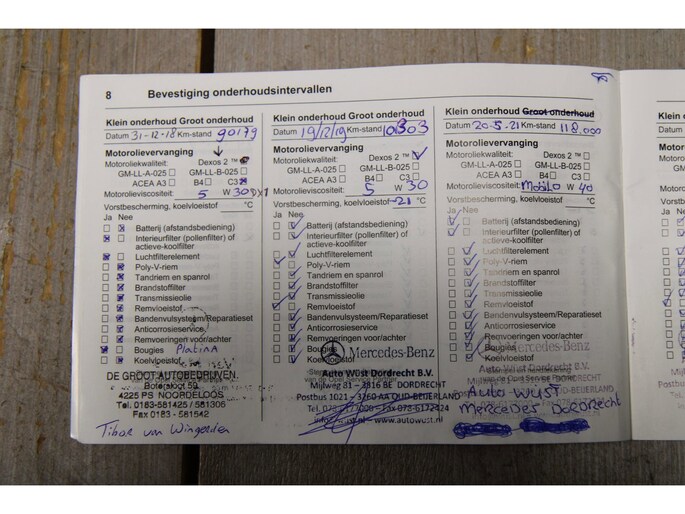 8 Bevestiging onderhoudsintervallen
Klein onderhoud Groot onderhoud
Datum 31-12-18 Km-stand 90179
Motorolievervanging
Motoroliekwaliteit: Dexos 2 ™
GM-LL-A-025 GM-LL-B-025
ACEA A3 B4 C3
Motorolieviscositeit: 5 W 30
Vorstbescherming, koelvloeistof °C
Ja Nee
Batterij (afstandsbediening)
Interieurfilter (pollenfilter) of
actieve-koolfilter
Luchtfilterelement
Poly-V-riem
Tandriem en spanrol
Brandstoffilter
Transmissieolie
Remvloeistof
Bandenvulsysteem/Reparatieset
Anticorrosieservice
Remvoeringen voor/achter
Bougies Platina
Koelvloeistof
DE GROOT AUTOBEDRIJVEN
Botersloot 59
4225 PS NOORDELOOS
Tel. 0183-581425 / 581306
Fax 0183 - 581542
Tibor van Wingerden
Klein onderhoud Groot onderhoud
Datum 19/12/19 Km-stand
Motorolievervanging
Motoroliekwaliteit: Dexos 2 ™
GM-LL-A-025 GM-LL-B-025
ACEA A3 B4 C3
Motorolieviscositeit: 5 W 30
Vorstbescherming, koelvloeistof -21 °C
Ja Nee
Batterij (afstandsbediening)
Interieurfilter (pollenfilter) of
actieve-koolfilter
Luchtfilterelement
Poly-V-riem
Tandriem en spanrol
Brandstoffilter
Transmissieolie
Remvloeistof
Bandenvulsysteem/Reparatieset
Anticorrosieservice
Remvoeringen voor/achter
Bougies
Koelvloeistof
Mercedes-Benz
Auto Wüst Dordrecht B.V.
Mijlweg 81 - 3316 BE DORDRECHT
Postbus 1021 - 3260 AA OUD-BEIJERLAND
Klein onderhoud Groot onderhoud
Datum 20-5-21 Km-stand 118.000
Motorolievervanging
Motoroliekwaliteit: Dexos 2 ™
GM-LL-A-025 GM-LL-B-025
ACEA A3 B4 C3
Motorolieviscositeit: Mobil 0 W 40
Vorstbescherming, koelvloeistof °C
Ja Nee
Batterij (afstandsbediening)
Interieurfilter (pollenfilter) of
actieve-koolfilter
Luchtfilterelement
Poly-V-riem
Tandriem en spanrol
Brandstoffilter
Transmissieolie
Remvloeistof
Bandenvulsysteem/Reparatieset
Anticorrosieservice
Remvoeringen voor/achter
Bougies
Koelvloeistof
Mercedes-Benz
Auto Wüst Dordrecht B.V.
Auto WUST
MERCEDES DORDRECHT